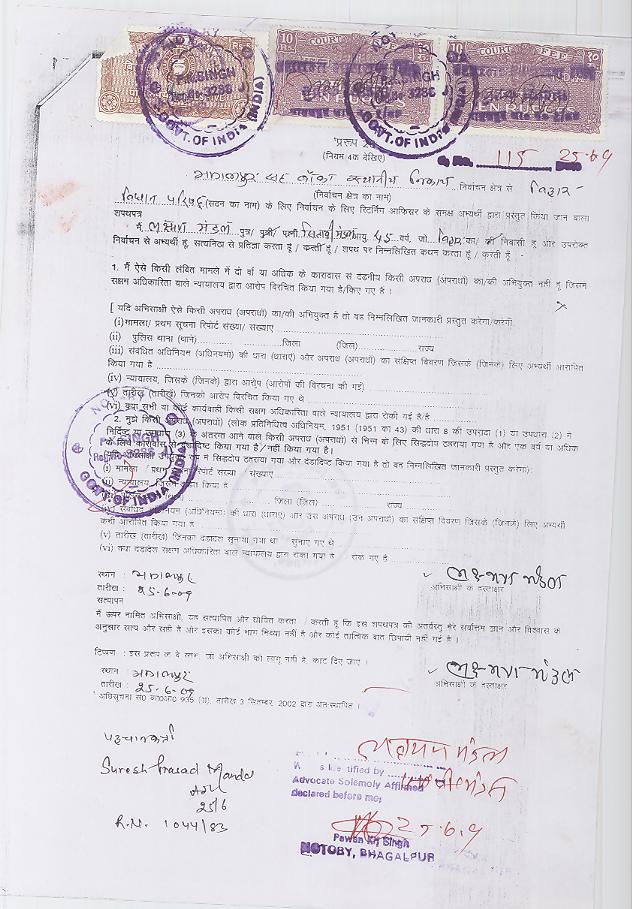 COURT FEE
COURT FEE
10 Rs.
10
१०
TEN RUPEES
TEN RUPEES
P.K.SINGH
Regd.No-3286
GOVT. OF INDIA (INDIA)
P.K.SINGH
3286
GOVT. OF INDIA (INDIA)
प्ररूप
(नियम 4क देखिए)
No. 115 25-6-9
भागलपुर सह बाँका स्थानीय निकाय निर्वाचन क्षेत्र से बिहार
(निर्वाचन क्षेत्र का नाम)
विधान परिषद् (सदन का नाम) के लिए निर्वाचन के लिए रिटर्निंग आफिसर के समक्ष अभ्यर्थी द्वारा प्रस्तुत किया जान वाला
शपथपत्र
मैं, लक्ष्मण मंडल पुत्र/ पुत्री/ पत्नी आयु 45 वर्ष, जो बिहार का/ के निवासी हू और उपरोक्त
निर्वाचन से अभ्यर्थी हूं, सत्यनिठा से प्रतिज्ञा करता हूं / करती हूं / शपथ पर निम्नलिखित कथन करता हूं / करती हूँ -
1. मैं ऐसे किसी लंबित मामले में दो वर्ष या अधिक के कारावास से दंडनीय किसी अपराध (अपराधों) का/की अभियुक्त नहीं हूं जिसमें
सक्षम अधिकारिता वाले न्यायालय द्वारा आरोप विरचित किया गया है/किए गए है ।
[ यदि अभिसाक्षी ऐसे किसी अपराध (अपराधों) का/की अभियुक्त है तो वह निम्नलिखित जानकारी प्रस्तुत करेगा/करेगी:
(i)मामला/ प्रथम सूचना रिपोर्ट संख्या/ संख्याएं
(ii) पुलिस थाना (थाने) जिला (जिले) राज्य
(iii) संबंधित अधिनियम (अधिनियमों) की धारा (धाराएं) और अपराध (अपराधों) का संक्षिप्त विवरण जिसके (जिनके) लिए अभ्यर्थी आरोपित
किया गया है
(iv) न्यायालय, जिसके (जिनके) द्वारा आरोप (आरोपों की विरचना की गई)
(v) तारीख (तारीखें) जिनको आरोप विरचित किए गए थे
(vi) क्या सभी या कोई कार्यवाही किसी सक्षम अधिकारिता वाले न्यायालय द्वारा रोकी गई है/हैं
2. मुझे किसी अपराध (अपराधों) (लोक प्रतिनिधित्व अधिनियम, 1951 (1951 का 43) की धारा 8 की उपधारा (1) या उपधारा (2) में
निर्दिष्ट या उपधारा (3) के अंतर्गत आने वाले किसी अपराध (अपराधों) से भिन्न के लिए सिद्धदोष ठहराया गया है और एक वर्ष या अधिक
के लिए कारावास से दंडादिष्ट किया गया है/ नहीं किया गया है।
सिद्धदोष ठहराया गया और दंडादिष्ट किया गया है तो वह निम्नलिखित जानकारी प्रस्तुत करेगा):
(i) मामला/ प्रथम रिपोर्ट संख्या संख्याएं
(ii) न्यायालय, जिसने दंडित किया है
जिला (जिले) राज्य
धारा (धाराएं) और उस अपराध (उन अपराधों) का संक्षिप्त विवरण जिसके (जिनके) लिए अभ्यर्थी
आरोपित किया गया है
(v) तारीख (तारीखें) जिनको दंडादेश सुनाया गया था सुनाए गए थे
(vi) क्या दंडादेश सक्षम अधिकारिता वाले न्यायालय द्वारा रोका गया है रोके गए है
P.K.SINGH
Regd.No-3286
GOVT. OF INDIA (INDIA)
स्थान : भागलपुर
तारीख : 25-6-09
लक्ष्मण मंडल
अभिसाक्षी के हस्ताक्षर
सत्यापन
मैं ऊपर नामित अभिसाक्षी, यह सत्यापित और घोषित करता / करती हूं कि इस शपथपत्र की अंतर्वस्तु मेरे सर्वोत्तम ज्ञान और विश्वास के
अनुसार सत्य और सही है और इसका कोई भाग मिथ्या नहीं है और कोई तात्विक बात छिपायी नहीं गई है ।
टिप्पण : इस प्ररूप के वे स्तंभ, जो अभिसाक्षी को लागू नहीं है, काट दिए जाएं ।
स्थान : भागलपुर
तारीख : 25-6-09
लक्ष्मण मंडल
अभिसाक्षी के हस्ताक्षर
अधिसूचना सं0 का0आ0 935 (अ), तारीख 3 सितम्बर, 2002 द्वारा अंतःस्थापित ।
पहचानकर्त्ता
Suresh Prasad Mandal
25/6
R.N. 1044/83
लक्ष्मण मंडल
identified by
Advocate Solemoly Affirmed
declared before me
25.6.9
Pawan Kr. Singh
NOTOBY, BHAGALPUR